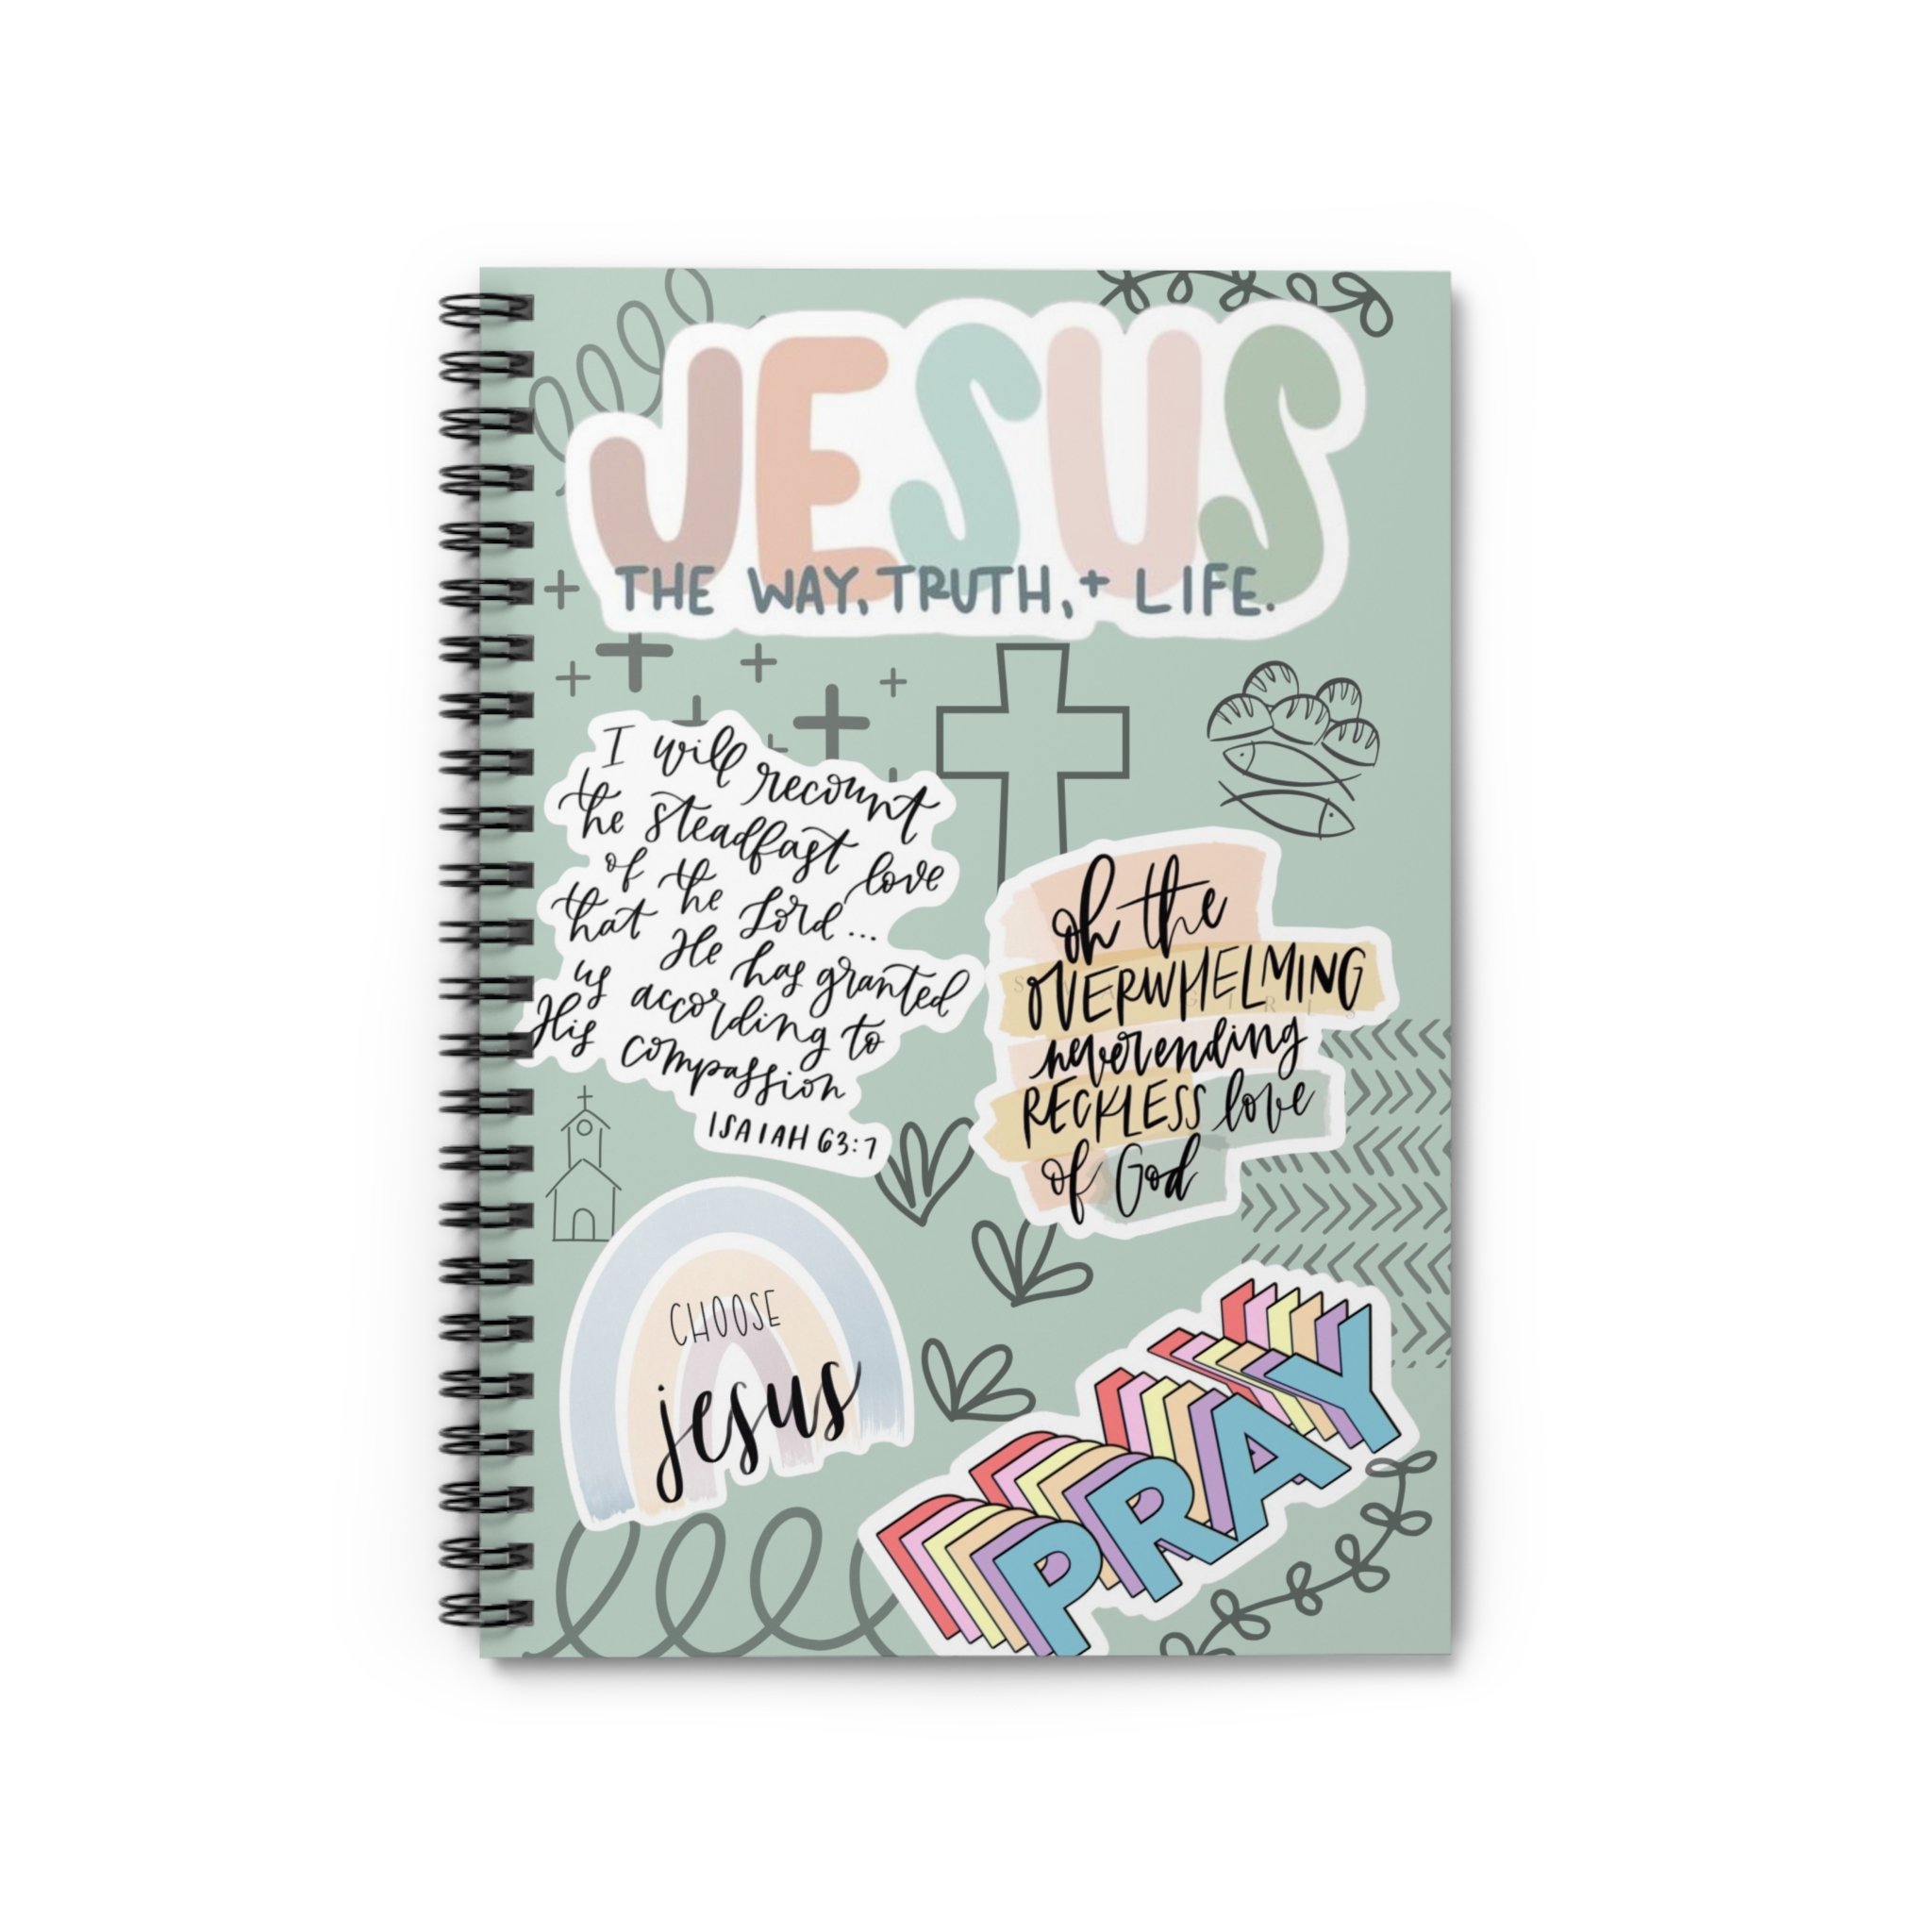 JESUS
THE WAY, TRUTH, + LIFE.
I will recount
the steadfast love
of the Lord...
that He has granted
us according to
His compassion
ISAIAH 63:7
oh the
OVERWHELMING
neverending
RECKLESS love
of God
CHOOSE
jesus
PRAY